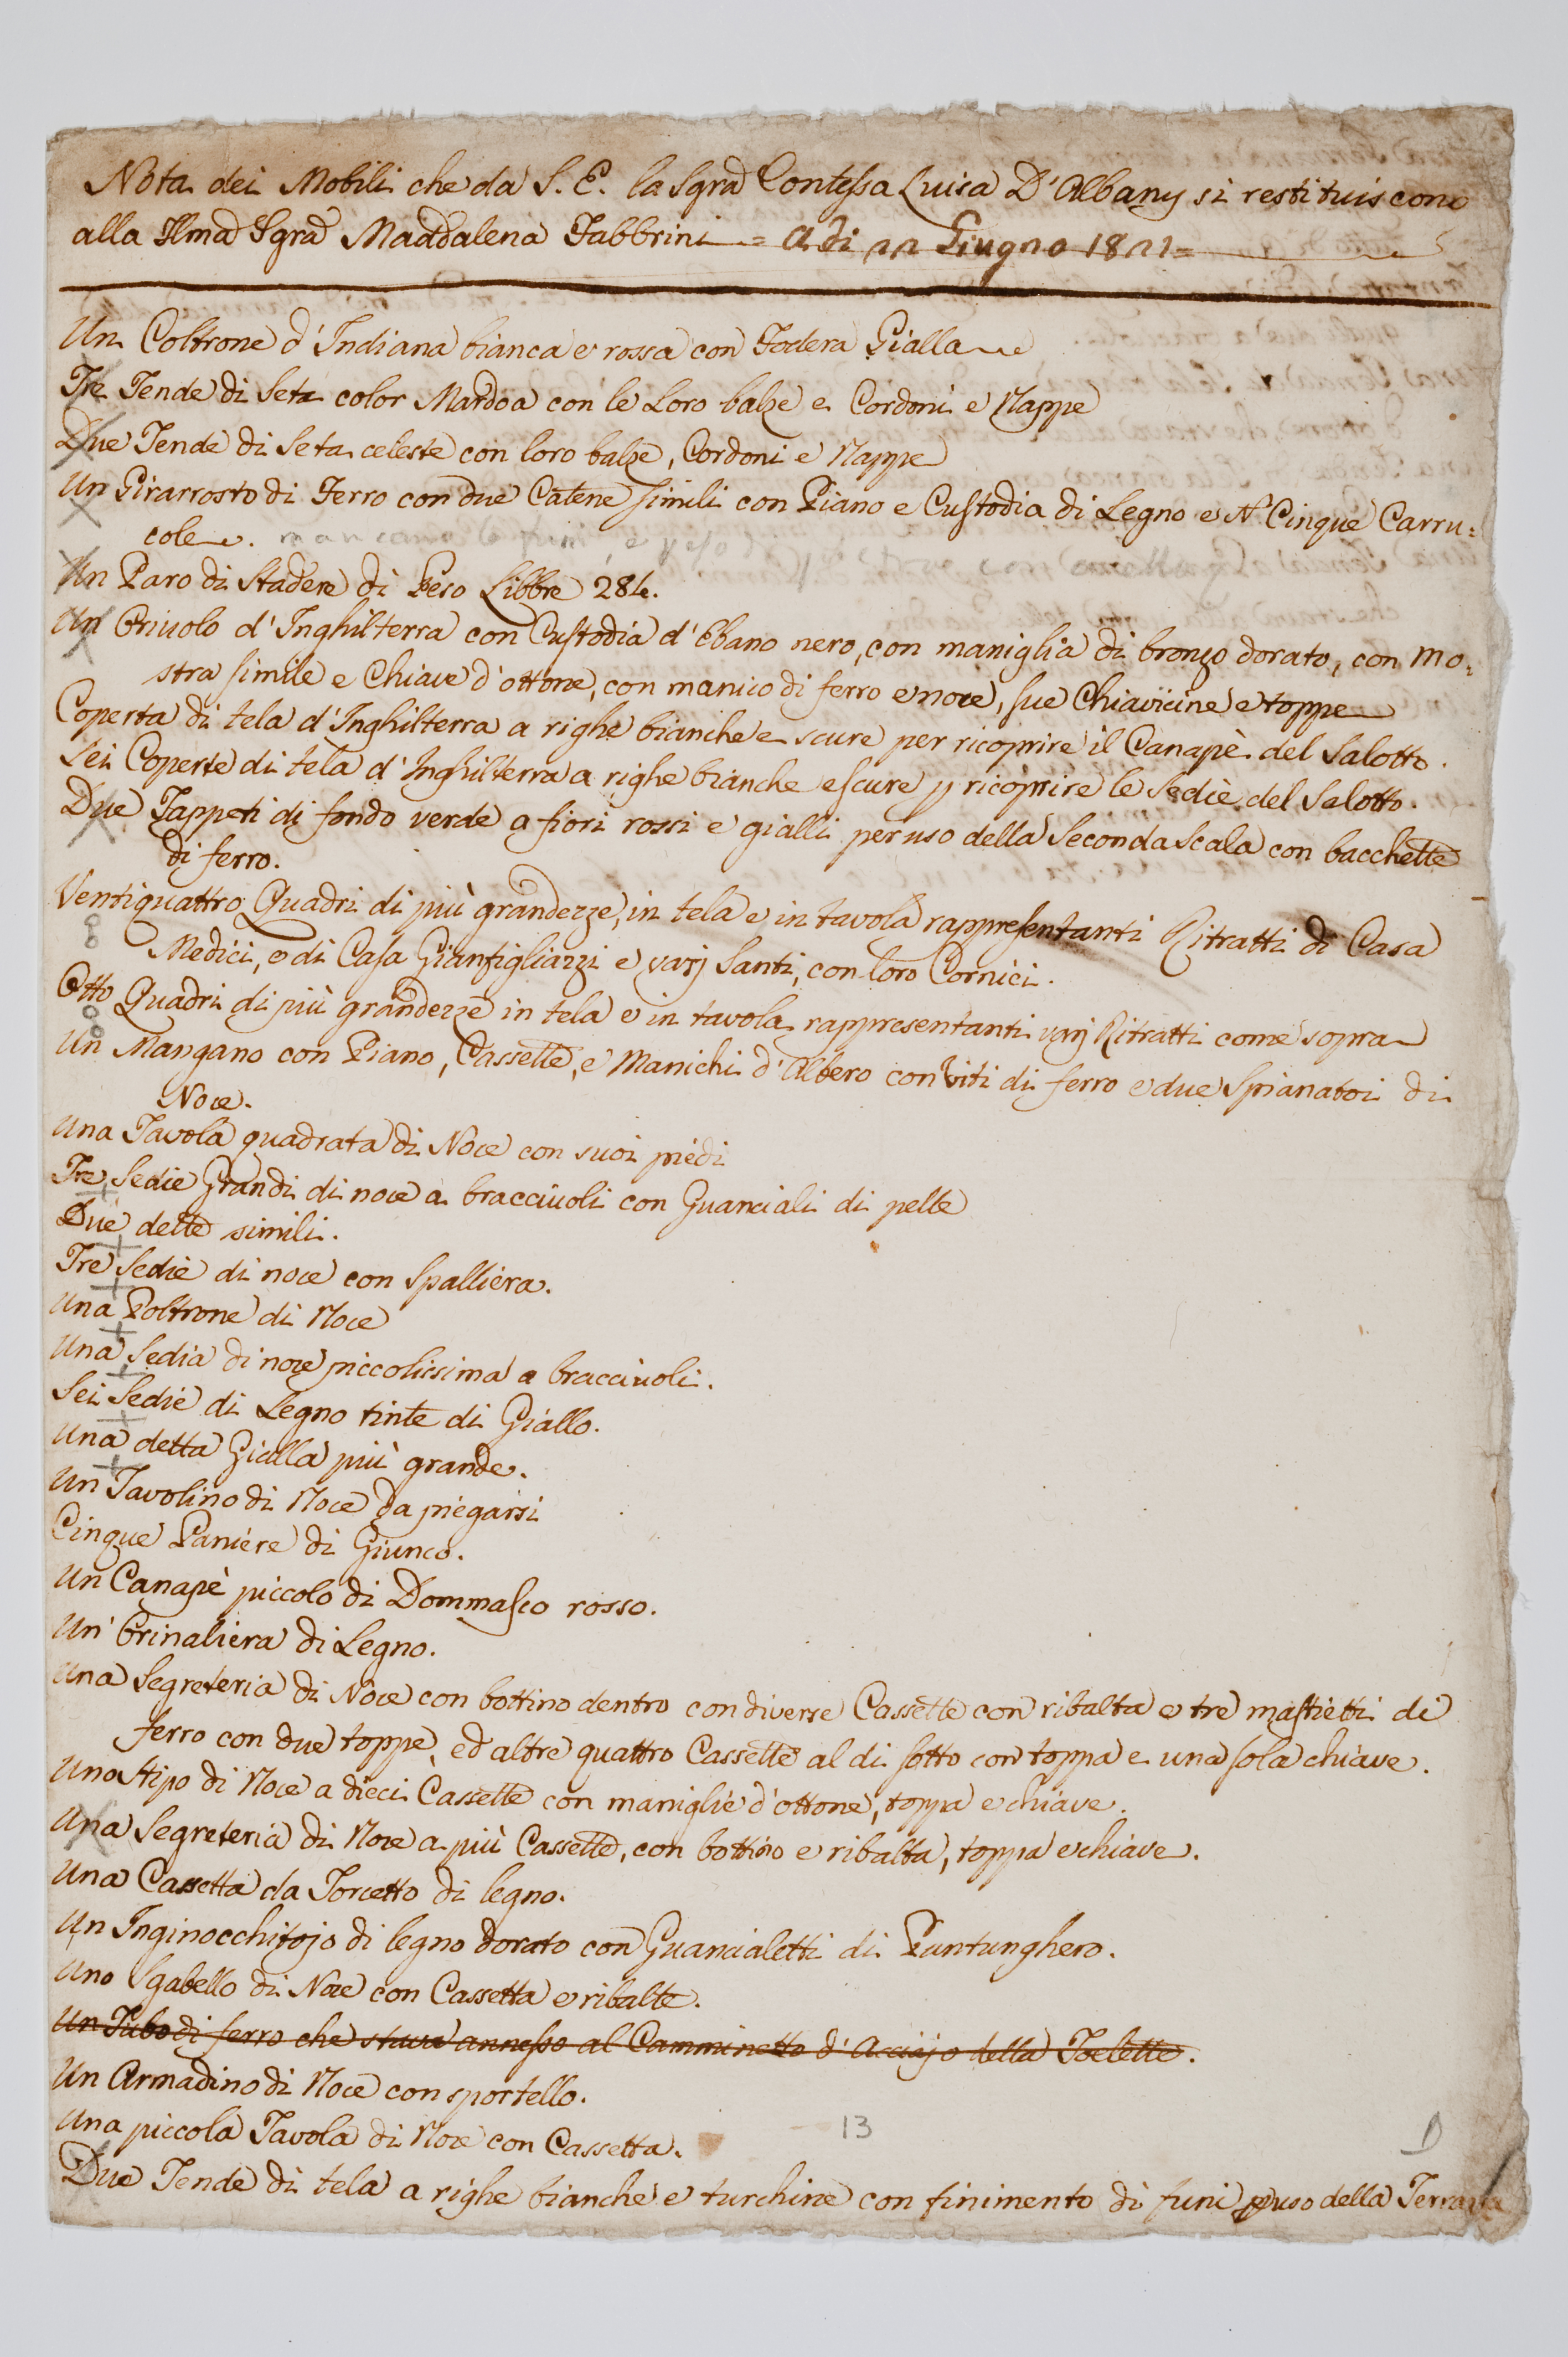 Nota dei Mobili che da S. E. la Sgra Contessa Luisa D'Albany si restituiscono
alla Ilma Sgra Maddalena Fabbrini = Adi 22 Giugno 1821=
Un Coltrone d'Indiana bianca e rossa con Fodera Gialla
Tre Tende di Seta color Mardoa con le Loro balze e Cordoni e Nappe
Due Tende di Seta celeste con loro balze, Cordoni e Nappe
Un Girarrosto di Ferro con due Catene simili con Piano e Custodia di Legno e N° Cinque Carru=
cole. mancano le funi, e peso
Un Paro di Stadere di Peso Libbre 284.
Un Oriuolo d'Inghilterra con Custodia d'Ebano nero, con maniglia di bronzo dorato, con mo=
stra simile e Chiave d'ottone, con manico di ferro e noce, sue Chiavicine e toppe
Coperta di tela d'Inghilterra a righe bianche e scure per ricoprire il Canapè del Salotto.
Sei Coperte di tela d'Inghilterra a righe bianche e scure p ricoprire le Sedie del Salotto.
Due Tappeti di fondo verde a fiori rossi e gialli per uso della Seconda Scala con bacchette
di ferro.
Ventiquattro Quadri di più grandezze, in tela e in tavola rappresentanti Ritratti di Casa
Medici, e di Casa Gianfigliazzi e varj Santi, con loro Cornici.
Otto Quadri di più grandezze in tela e in tavola rappresentanti varj Ritratti come sopra
Un Mangano con Piano, Cassette, e Manichi d'Albero con Viti di ferro e due Spianatoi di
Noce.
Una Tavola quadrata di Noce con suoi piedi
Tre Sedie Grandi di noce a bracciuoli con Guanciali di pelle
Due dette simili.
Tre Sedie di noce con Spalliera.
Una Poltrone di Noce
Una Sedia di noce piccolissima a bracciuoli.
Sei Sedie di Legno tinte di Giallo.
Una detta Gialla più grande.
Un Tavolino di Noce da piegarsi
Cinque Paniere di Giunco.
Un Canapè piccolo di Dommasco rosso.
Un' Orinaliera di Legno.
Una Segreteria di Noce con bottino dentro con diverse Cassette con ribalta e tre mastietti di
ferro con due toppe, ed altre quattro Cassette al di sotto con toppa e una sola chiave.
Uno Stipo di Noce a dieci Cassette con maniglie d'ottone, toppa e chiave.
Una Segreteria di Noce a più Cassette, con bottino e ribalta, toppa e chiave.
Una Cassetta da Torcetto di legno.
Un Inginocchitojo di legno dorato con Guancialetti di Puntunghero.
Uno Sgabello di Noce con Cassetta e ribalte.
Un Tubo di ferro che stava annesso al Camminetto d'Acciajo della Toelette.
Un Armadino di Noce con sportello.
Una piccola Tavola di Noce con Cassetta.
13
Due Tende di tela a righe bianche e turchine con finimento di funi p uso della Terrazza